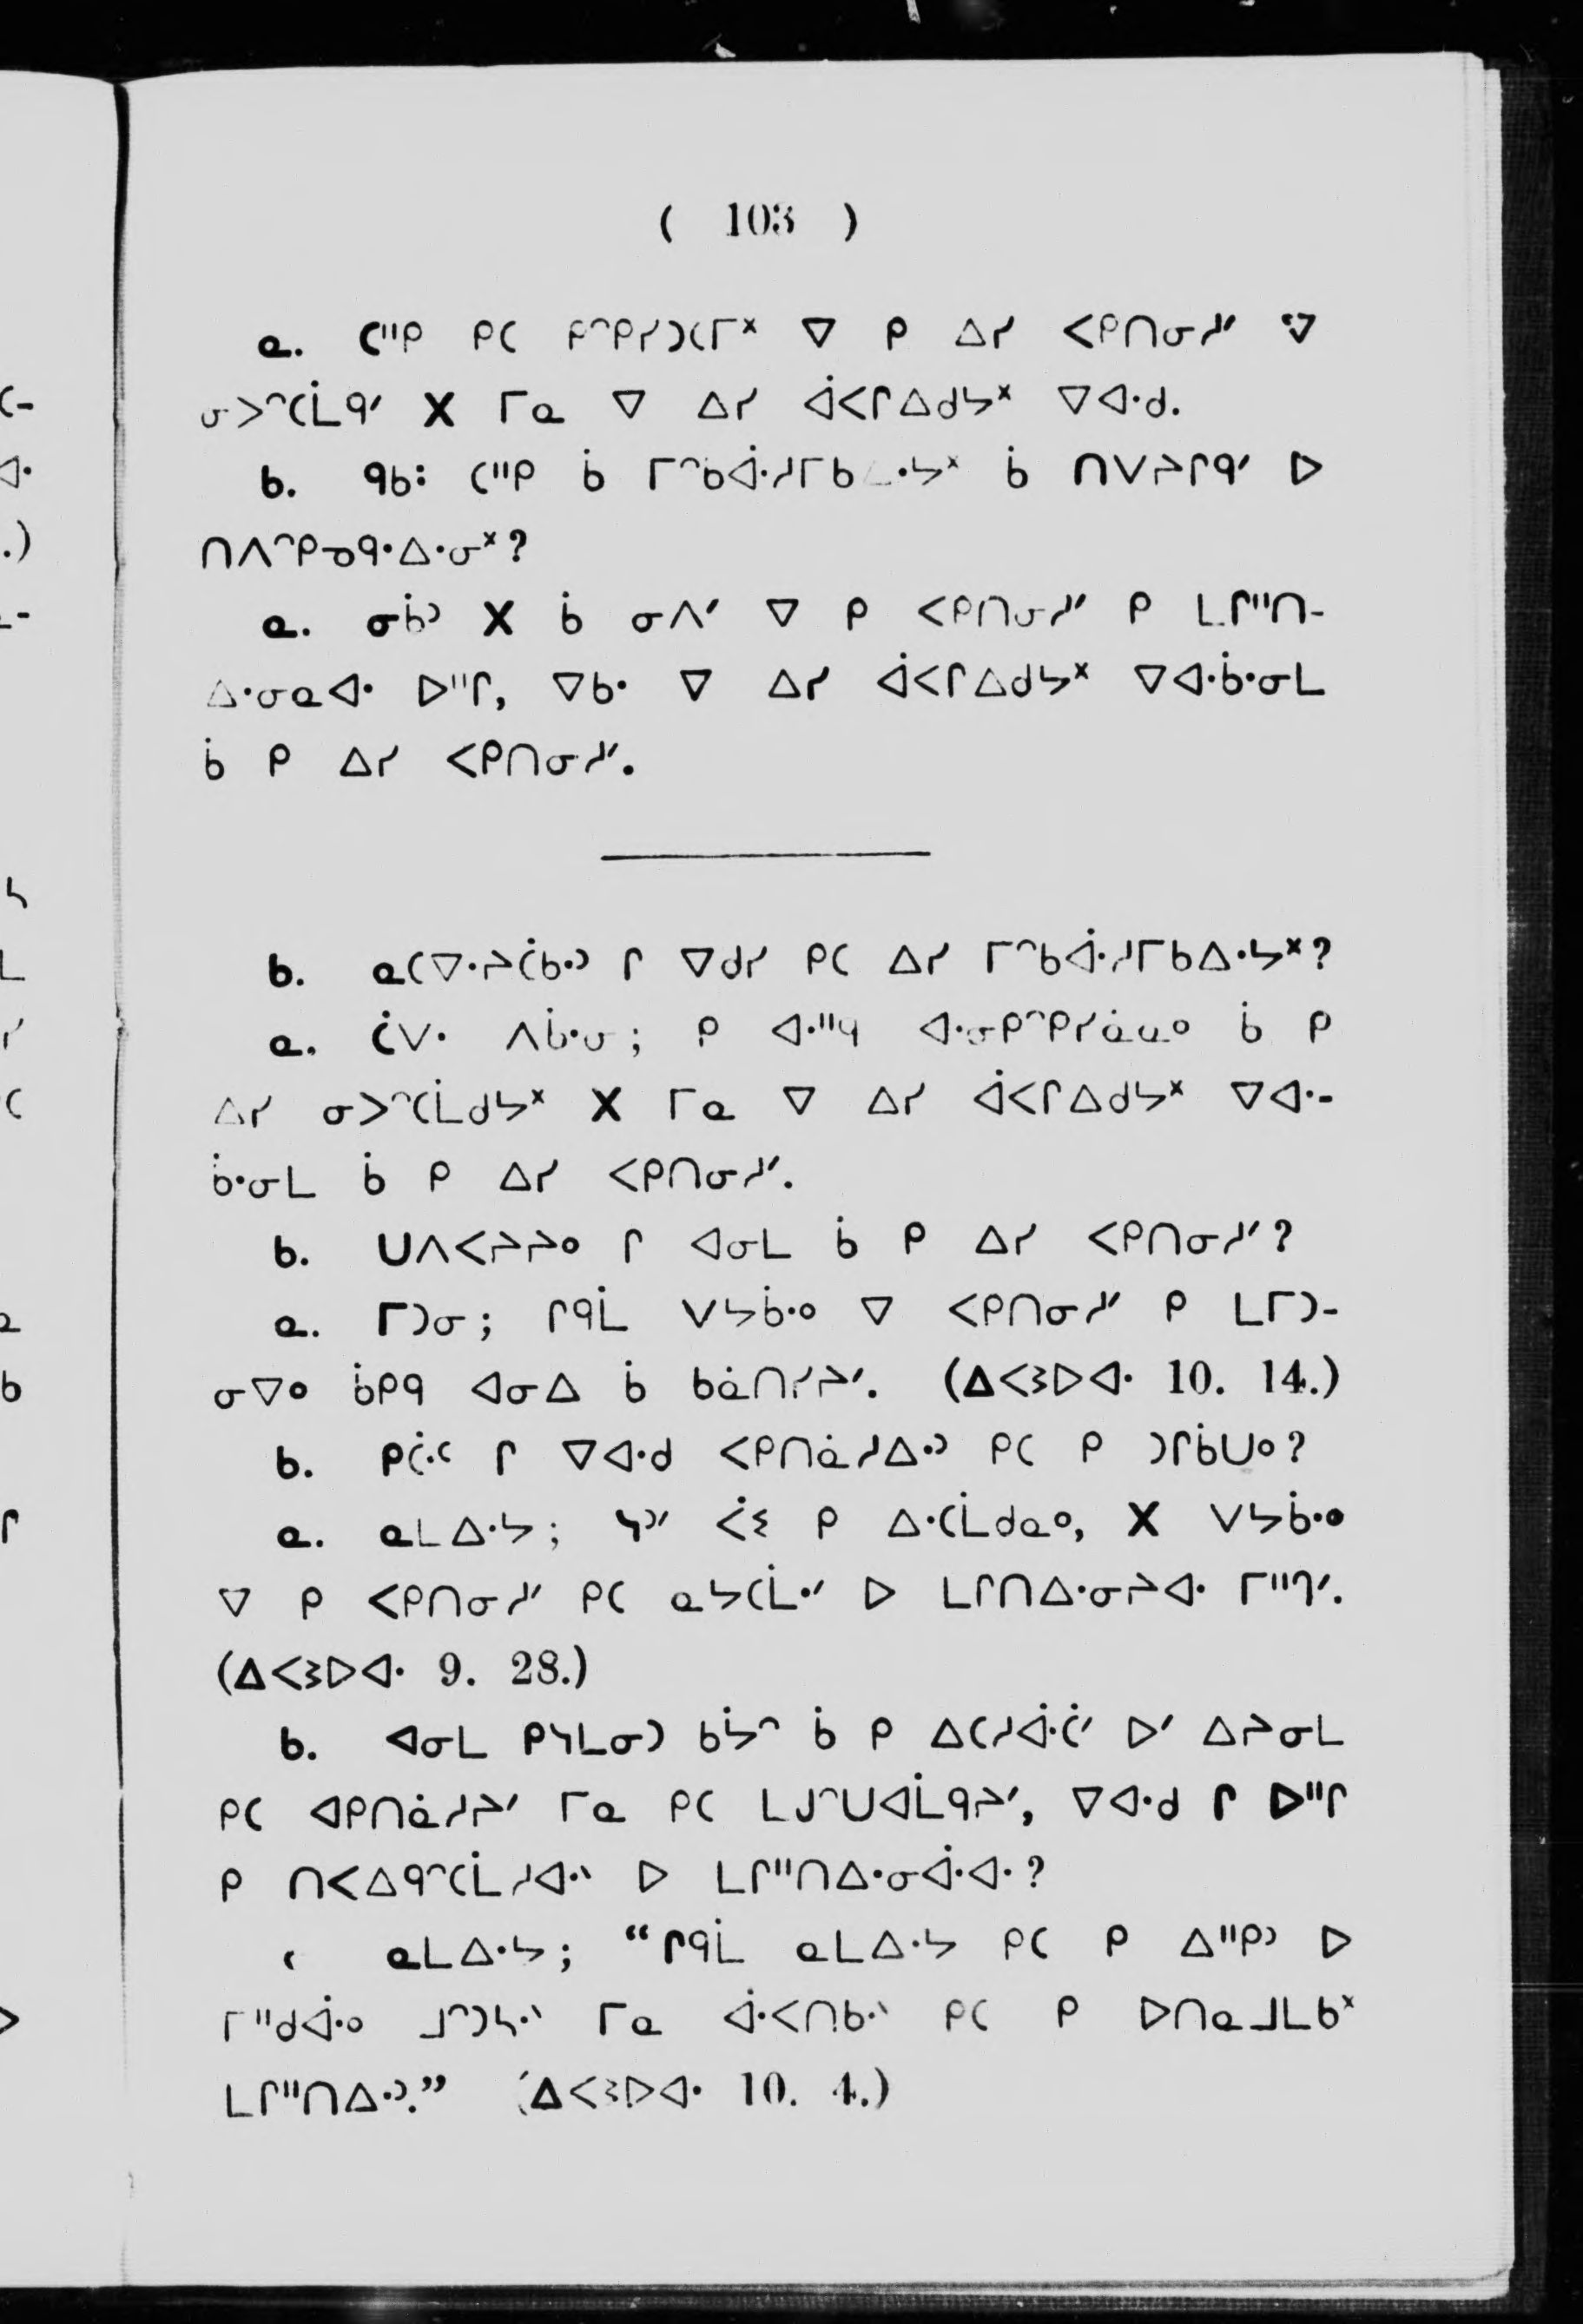 ( 103 )
ᓇ. ᑕᐦᑭ ᑭᑕ ᑭᐢᑭᓯᑐᑕᒥᕽ ᐁ ᑭ ᐃᓯ ᐸᑭᑎᓂᓱᐟ ᐁ
ᓂᐳᐢᑕᒫᑫᐟ X ᒥᓇ ᐁ ᐃᓯ ᐋᐸᒋᐃᑯᔭᕽ ᐁᐊᐧᑯ.
ᑲ. ᑫᑲ: ᑕᐦᑭ ᑳ ᒥᐢᑲᐋᐧᓱᒥᑲᐃᐧᔭᕽ ᑳ ᑎᐯᔨᒋᑫᐟ ᐅ
ᑎᐱᐢᑭᓄᑫᐧᐃᐧᓂᕽ?
ᓇ. ᓂᑳᐣ X ᑳ ᓂᐱᐟ ᐁ ᑭ ᐸᑭᑎᓂᓱᐟ ᑭ ᒪᒋᐦᑎ-
ᐃᐧᓂᓇᐊᐧ ᐅᐦᒋ, ᐁᑲᐧ ᐁ ᐃᓯ ᐋᐸᒋᐃᑯᔭᕽ ᐁᐊᐧᑳᐧᓂᒪ
ᑳ ᑭ ᐃᓯ ᐸᑭᑎᓂᓱᐟ.
ᑲ. ᓇᑕᐁᐧᔨᑖᑲᐧᐣ ᒋ ᐁᑯᓯ ᑭᑕ ᐃᓯ ᒥᐢᑲᐋᐧᓱᒥᑲᐃᐧᔭᕽ?
ᓇ. ᑖᐯᐧ ᐱᑳᐧᓂ; ᑭ ᐊᐧᐦᔦ ᐊᐧᓂᑭᐢᑭᓯᓈᓇᐤ ᑳ ᑭ
ᐃᓯ ᓂᐳᐢᑕᒫᑯᔭᕽ X ᒥᓇ ᐁ ᐃᓯ ᐋᐸᒋᐃᑯᔭᕽ ᐁᐊᐧ-
ᑳᐧᓂᒪ ᑳ ᑭ ᐃᓯ ᐸᑭᑎᓂᓱᐟ.
ᑲ. ᑌᐱᐸᔨᔨᐤ ᒋ ᐊᓂᒪ ᑳ ᑭ ᐃᓯ ᐸᑭᑎᓂᓱᐟ?
ᓇ. ᒥᑐᓂ; ᒋᑫᒫ ᐯᔭᑳᐧᐤ ᐁ ᐸᑭᑎᓂᓱᐟ ᑭ ᒪᒥᑐ-
ᓂᐁᐤ ᑳᑭᑫ ᐊᓂᐃ ᑳ ᑲᓈᑎᓯᔨᐟ. (ᐃᐸᕒᐅᐊᐧ 10. 14.)
ᑲ. ᑭᑖᐧᑦ ᒋ ᐁᐊᐧᑯ ᐸᑭᑎᓈᓱᐃᐧᐣ ᑭᑕ ᑭ ᑐᒋᑳᑌᐤ?
ᓇ. ᓇᒪᐃᐧᔭ; ᓴᐣᐟ ᐹᕒ ᑭ ᐃᐧᑕᒫᑯᓇᐤ, X ᐯᔭᑳᐧᐤ
ᐁ ᑭ ᐸᑭᑎᓂᓱᐟ ᑭᑕ ᓇᔭᑕᒫᐧᐟ ᐅ ᒪᒋᑎᐃᐧᓂᔨᐊᐧ ᒥᐦᒉᐟ.
(ᐃᐸᕒᐅᐊᐧ 9. 28.)
ᑲ. ᐊᓂᒪ ᑭᓴᒪᓂᑐ ᑲᔮᐢ ᑳ ᑭ ᐃᑕᓱᐋᐧᑖᐟ ᐅᐟ ᐃᔨᓂᒪ
ᑭᑕ ᐊᑭᑎᓈᓱᔨᐟ ᒥᓇ ᑭᑕ ᒪᒍᐢᑌᐊᒫᑫᔨᐟ, ᐁᐊᐧᑯ ᒋ ᐅᐦᒋ
ᑭ ᑎᐸᐃᑫᐢᑕᒫᓱᐊᐧᐠ ᐅ ᒪᒋᐦᑎᐃᐧᓂᐋᐧᐊᐧ?
ᓇᒪᐃᐧᔭ; “ᒋᑫᒫ ᓇᒪᐃᐧᔭ ᑭᑕ ᑭ ᐃᐦᑭᐣ ᐅ
ᒥᐦᑯᐋᐧᐤ ᒧᐢᑐᓴᐧᐠ ᒥᓇ ᐋᐧᐸᑎᑲᐧᐠ ᑭᑕ ᑭ ᐅᑎᓇᒧᒪᑲᕽ
ᒪᒋᐦᑎᐃᐧᐣ.” (ᐃᐸᕒᐅᐊᐧ 10. 4.)